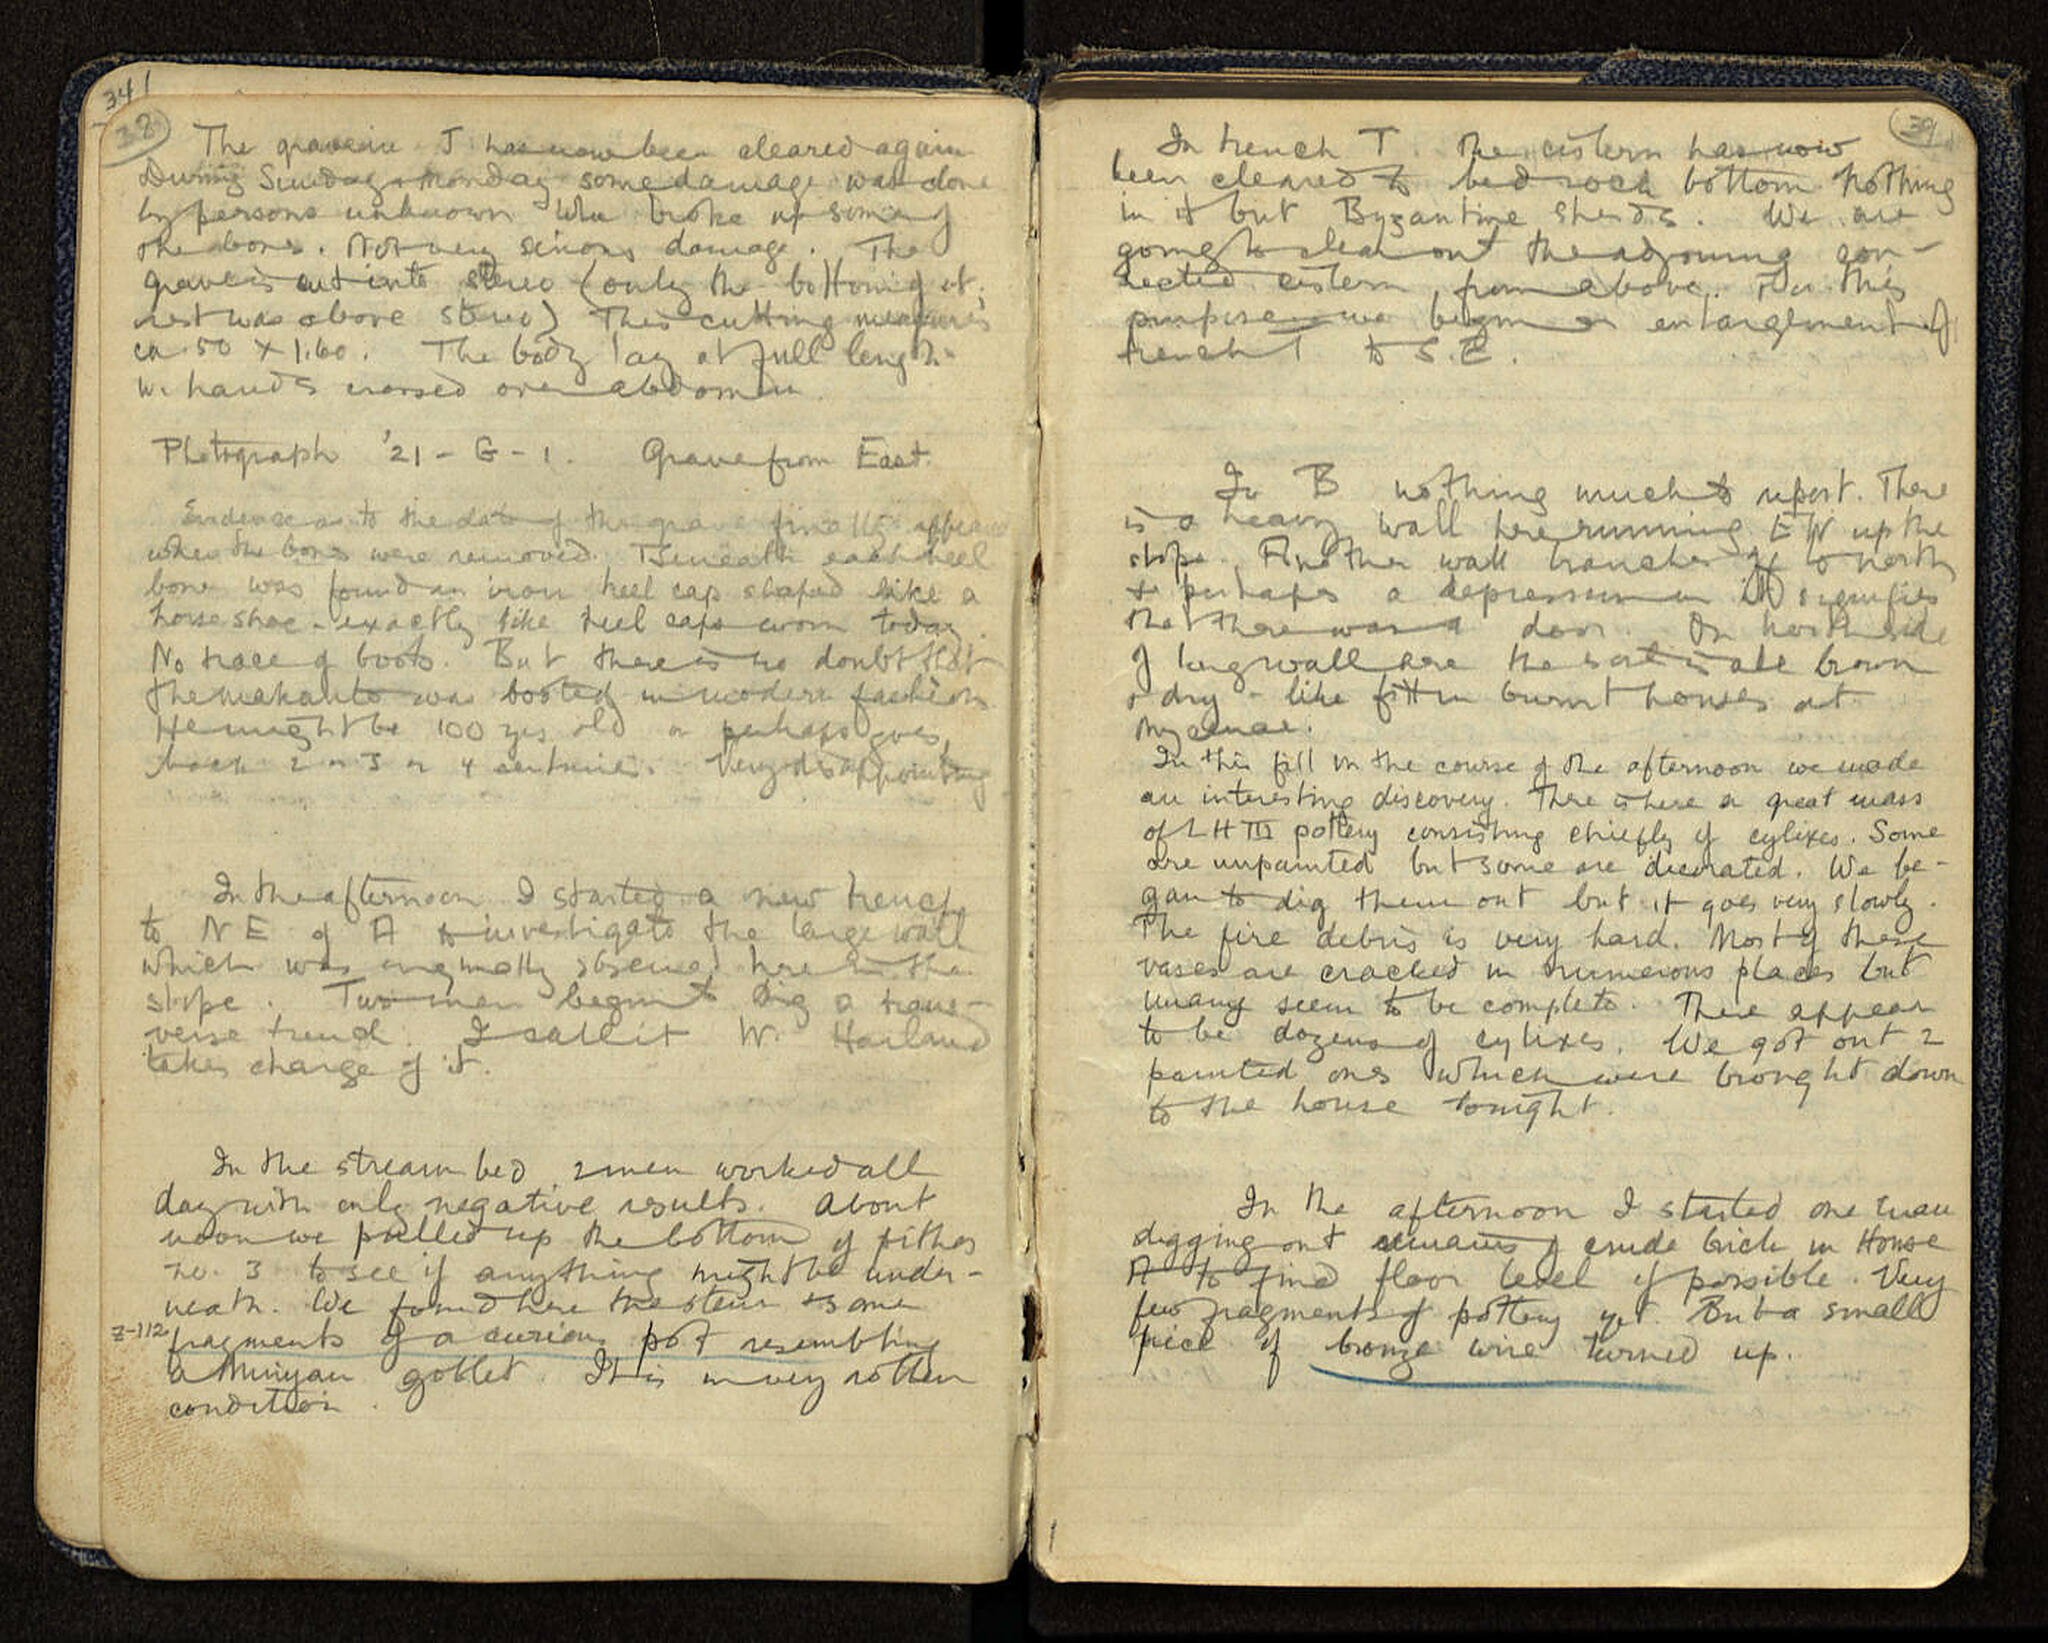 341
38
The grave in J has now been cleared again
During Sunday + Monday some damage was done
by persons unknown who broke up some of
the bones. Not very serious damage. The
grave is cut into stereo (only the bottom of it,
rest was above stereo) This cutting measures
ca .50 x 1.60. The body lay at full length
w. hands crossed over abdomen
Photograph '21 - G - 1. Grave from East.
Evidence as to the date of the grave finally appeared
when the bones were removed. Beneath each heel
bone was found an iron heel cap shaped like a
horse shoe - exactly like heel caps worn today.
No trace of boots. But there is no doubt that
the makarito was booted in modern fashion.
He might be 100 yrs old or perhaps goes
back 2 or 3 or 4 centuries. Very disappointing
In the afternoon I started a new trench
to NE of A to investigate the large wall
which was originally observed here in the
slope. Two men begin to dig a trans-
verse trench. I call it W. Harland
takes charge of it.
In the stream bed 2 men worked all
day with only negative results. About
noon we pulled up the bottom of pithos
no. 3 to see if anything might be under-
neath. We found here the stem + some
Z-112 fragments of a curious pot resembling
a Minyan goblet. It is in very rotten
condition.
39
In trench T the cistern has now
been cleared to bed rock bottom Nothing
in it but Byzantine sherds. We are
going to clear out the adjoining con-
nected cistern from above. For this
purpose we begin an enlargement of
trench T to S.E.
In B nothing much to report. There
is a heavy wall here running EW up the
slope. Another wall branches off to north
+ perhaps a depression in it signifies
that there was a door. On north side
of long wall are the soil is all brown
+ dry - like fill in burnt houses at
Mycenae.
In this fill in the course of the afternoon we made
an interesting discovery. There is here a great mass
of LH III pottery consisting chiefly of cylixes. Some
are unpainted but some are decorated. We be-
gan to dig them out but it goes very slowly.
The fire debris is very hard. Most of these
vases are cracked in numerous places but
many seem to be complete. There appear
to be dozens of cylixes. We got out 2
painted ones which were brought down
to the house tonight.
In the afternoon I started one man
digging out remains of crude brick in House
A to find floor level if possible. Very
few fragments of pottery yet. But a small
piece of bronze wire turned up.